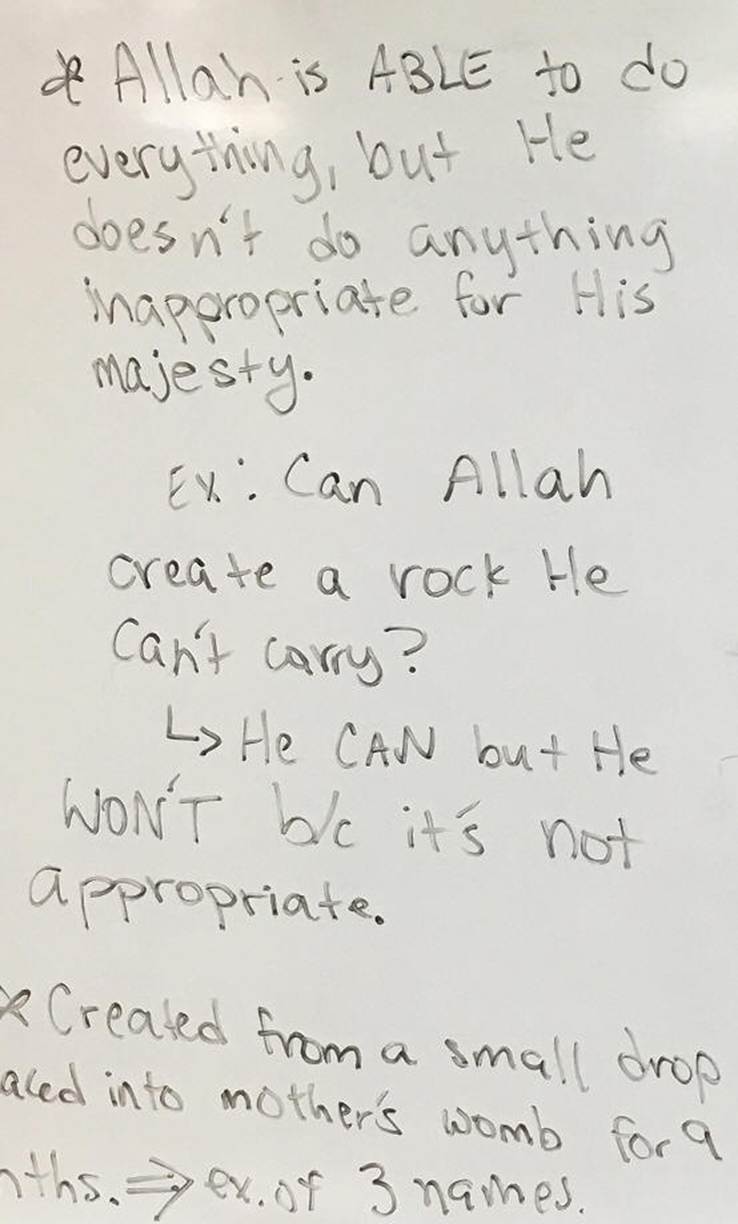 * Allah is ABLE to do
everything, but He
doesn't do anything
inappropriate for His
majesty.
Ex: Can Allah
create a rock He
Can't carry?
↳ He CAN but He
WON'T b/c it's not
appropriate.
* Created from a small drop
aced into mother's womb for 9
nths. ⇒ ex. of 3 names.